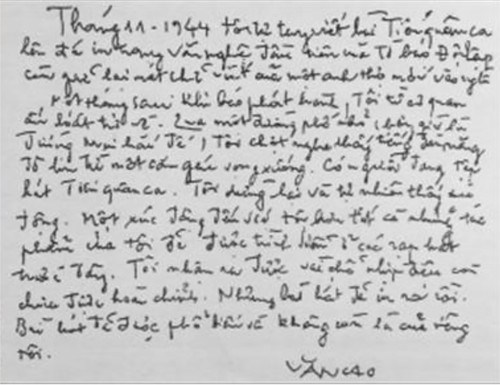 Tháng 11-1944 tôi tự tay viết bài Tiến quân ca
lên đá in trang văn nghệ đầu tiên của tờ báo Độc lập
còn giữ lại nét chữ viết của một anh thợ mới vào nghề
Một tháng sau khi báo phát hành, Tôi từ cơ quan
ấn loát trở về. Qua một đường phố nhỏ (bây giờ là
đường Mai Hắc Đế), Tôi chợt nghe thấy tiếng đàn măng
đô lin từ một căn gác vọng xuống. Có người đang tập
hát Tiến quân ca. Tôi dừng lại và tự nhiên thấy xúc
động. Một xúc động đến với tôi hơn tất cả những tác
phẩm của tôi đã được trình diễn ở các rạp hát
trước đây. Tôi nhận ra được vài chỗ nhịp điệu còn
chưa được hoàn chỉnh. Nhưng bài hát đã in ra rồi.
Bài hát đã được phổ biến và không còn là của riêng
tôi.
VĂN CAO